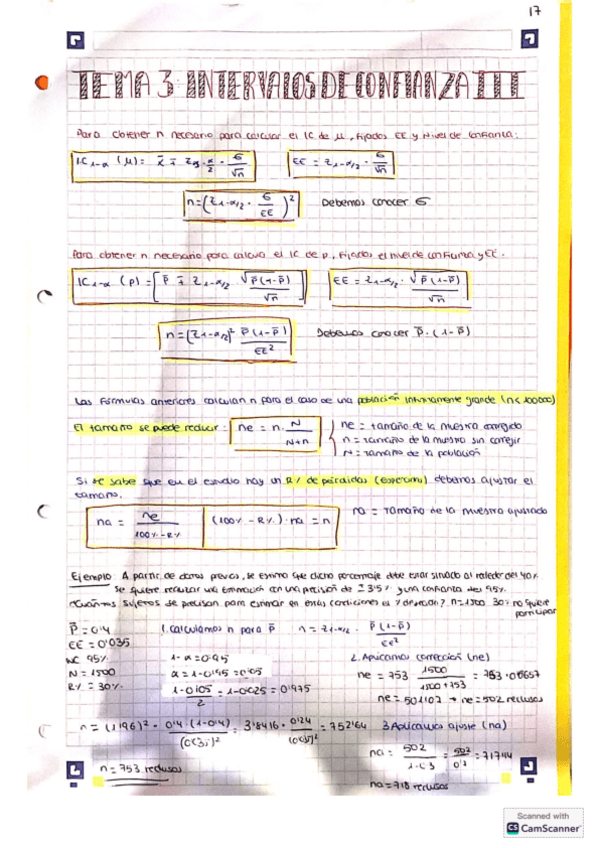 17
TEMA 3: INTERVALOS DE CONFIANZA III
Para obtener n necesario para calcular el IC de μ, fijados EE y Nivel de confianza:
IC₁₋α (μ) = x̄ ∓ Z₁₋α/2 · σ/√n    EE = Z₁₋α/2 · σ/√n
n = (Z₁₋α/2 · σ/EE)²    Debemos conocer σ
Para obtener n necesario para calcular el IC de p, fijados el nivel de confianza y EE.
IC₁₋α (p) = [p̄ ∓ Z₁₋α/2 · √p̄(1-p̄)/√n    EE = Z₁₋α/2 · √p̄(1-p̄)/√n
n = (Z₁₋α/2)² p̄(1-p̄)/EE²    Debemos conocer p̄·(1-p̄)
Las fórmulas anteriores calculan n para el caso de una población infinitamente grande
El tamaño se puede reducir: ne = n · N/N+n
ne = tamaño de la muestra corregido
n = tamaño de la muestra sin corregir
N = tamaño de la población
Si se sabe que en el estudio hay un R% de pérdidas (esperamos) debemos ajustar el
tamaño.
na = ne/100%-R%    (100%-R%)·na = n    na = Tamaño de la muestra ajustado
Ejemplo: A partir de datos previos, se estima que dicho porcentaje debe estar situado alrededor del 40%.
Se quiere realizar una estimación con una precisión de ±3'5% y una confianza del 95%.
¿Cuántos sujetos se precisan para estimar en estas condiciones el % deseado? n=1500 30% no quiere
participar
p̄ = 0'4    1. Calculamos n para p̄    n = Z₁₋α/2 · p̄(1-p̄)/EE²
EE = 0'035
NC 95%    1-α = 0'95    2. Aplicamos corrección (ne)
N = 1500    α = 1-0'95 = 0'05    ne = 753 · 1500/1500+753 = 753 · 0'6657
R% = 30%    1-0'05/2 = 1-0'025 = 0'975
ne = 501'07 → ne = 502 reclusos
n = (1'96)² · 0'4·(1-0'4)/(0'035)² = 3'8416 · 0'24/(0'035)² = 752'64    3. Aplicamos ajuste (na)
n = 753 reclusos    na = 502/1-0'3 = 502/0'7 = 717'14
na = 718 reclusos
Scanned with
CS CamScanner